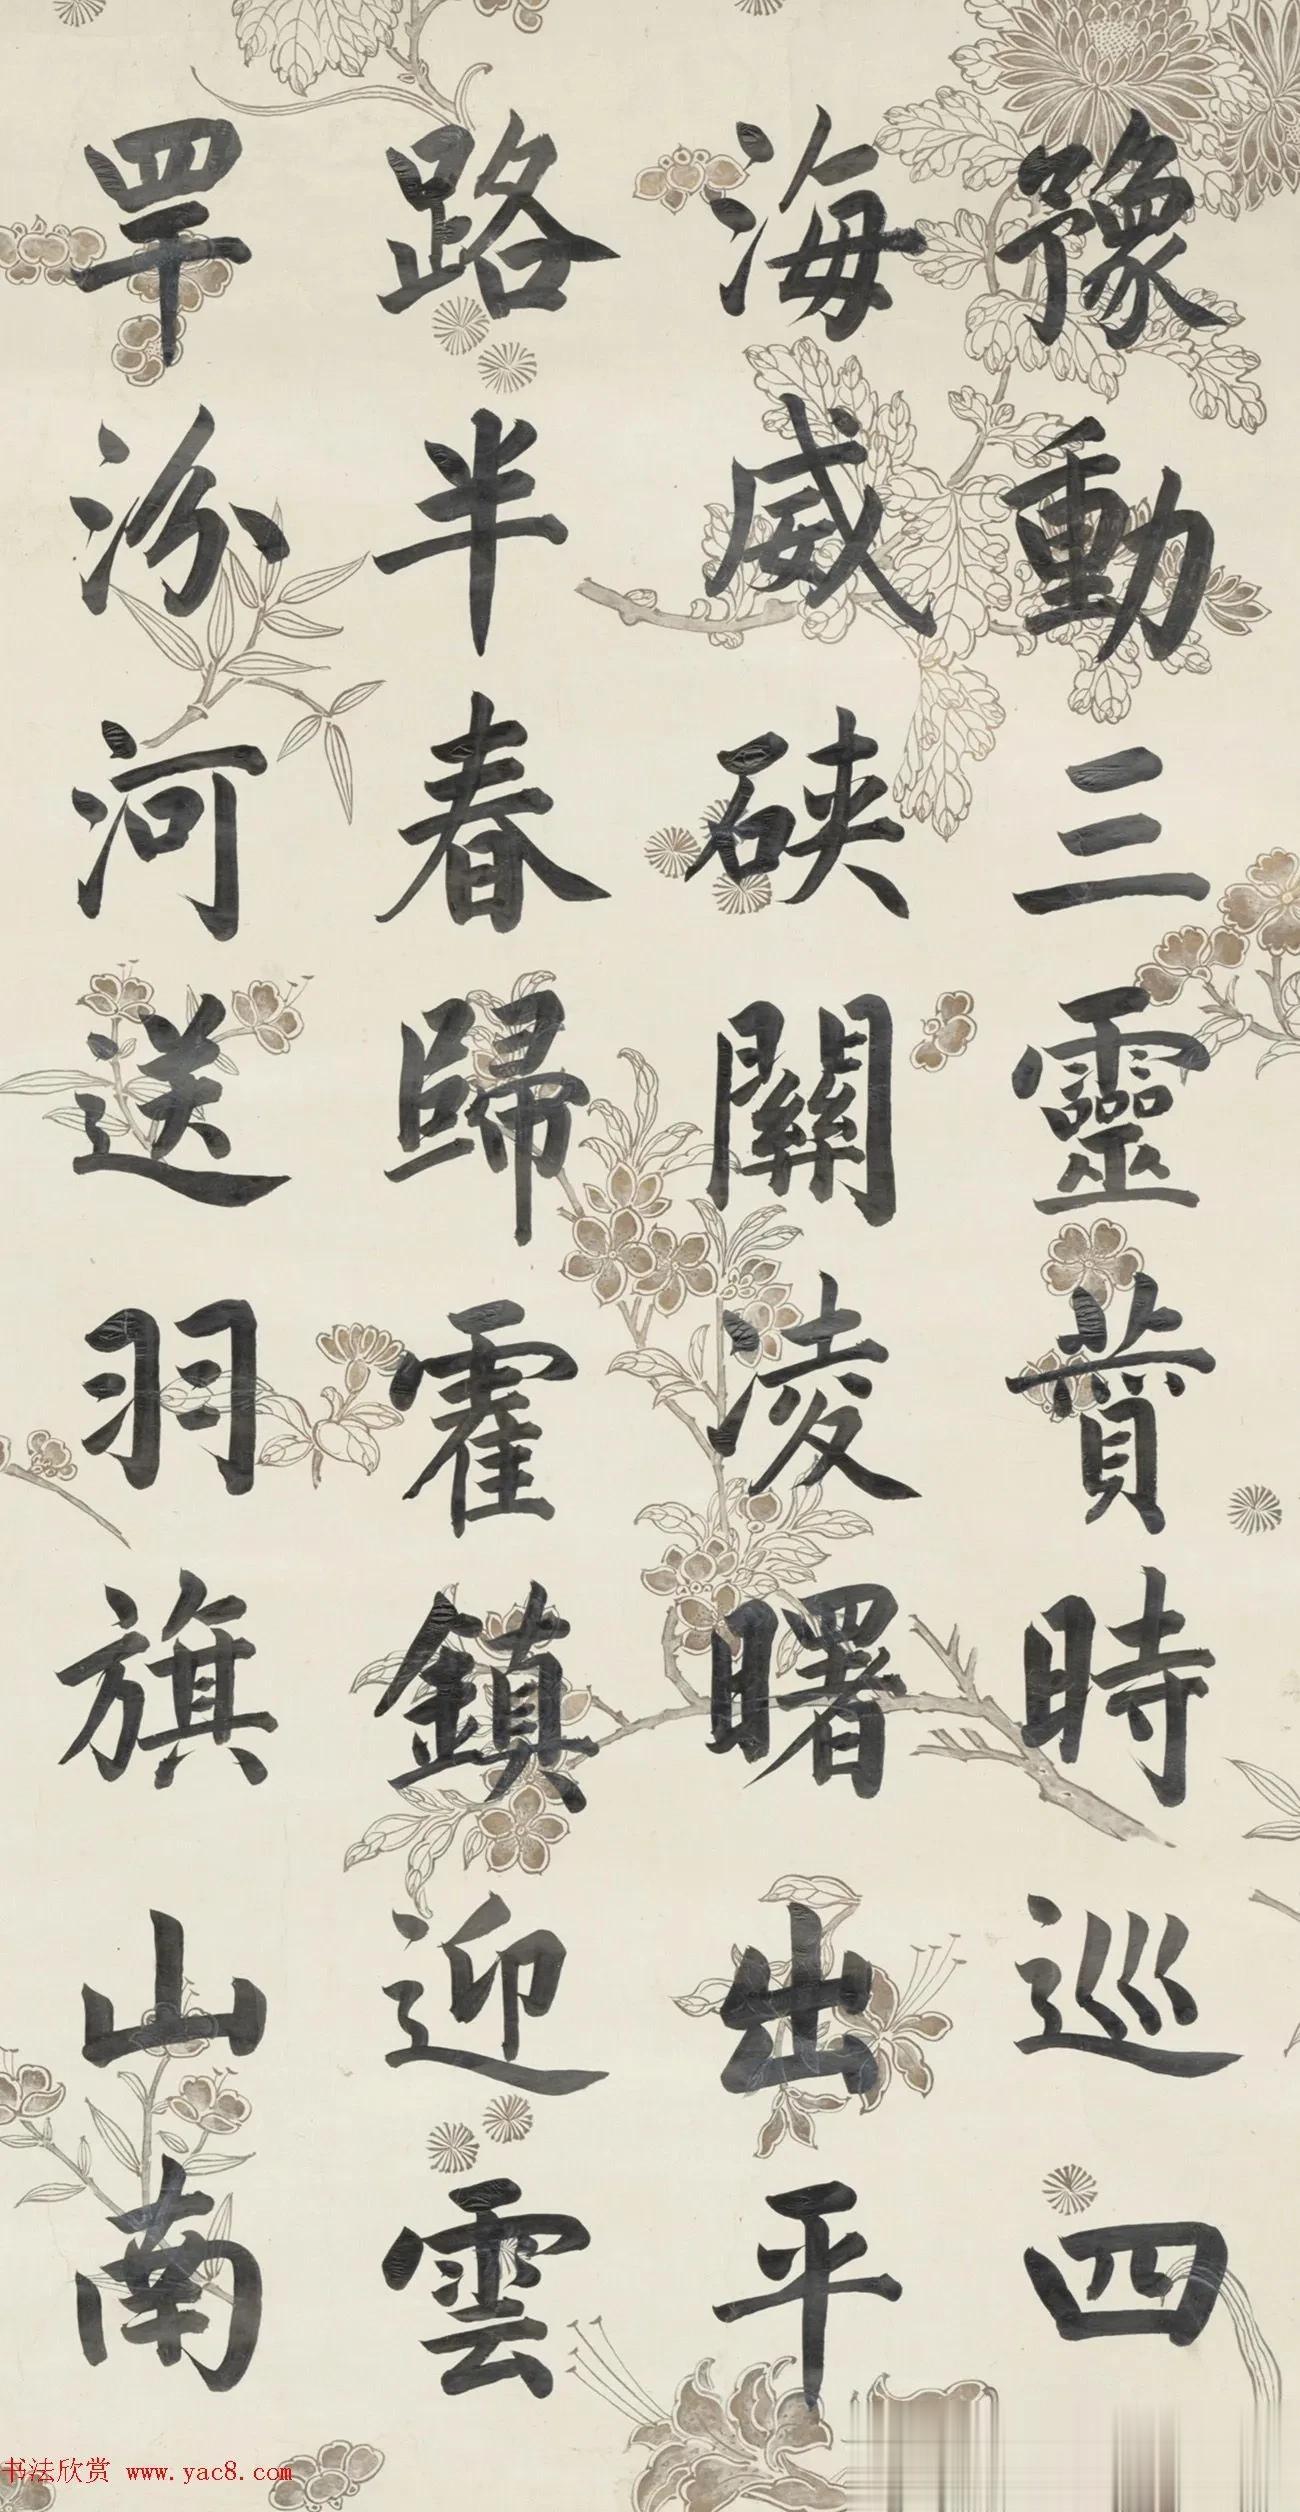 豫動三靈賛時巡四
海威硤關凌曙出平
路半春歸霍鎮迎雲
罕汾河送羽旗山南
书法欣赏 www.yac8.com